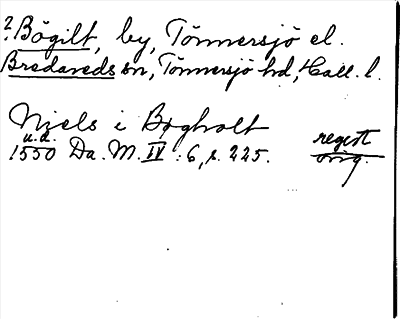 ? Bögilt, by, Tönnersjö el.
Bredareds sn, Tönnersjö hd, Hall. l.
Njels i Bøgholt
u.d. regest
1550 Da. M. IV : 6, s. 225. orig.